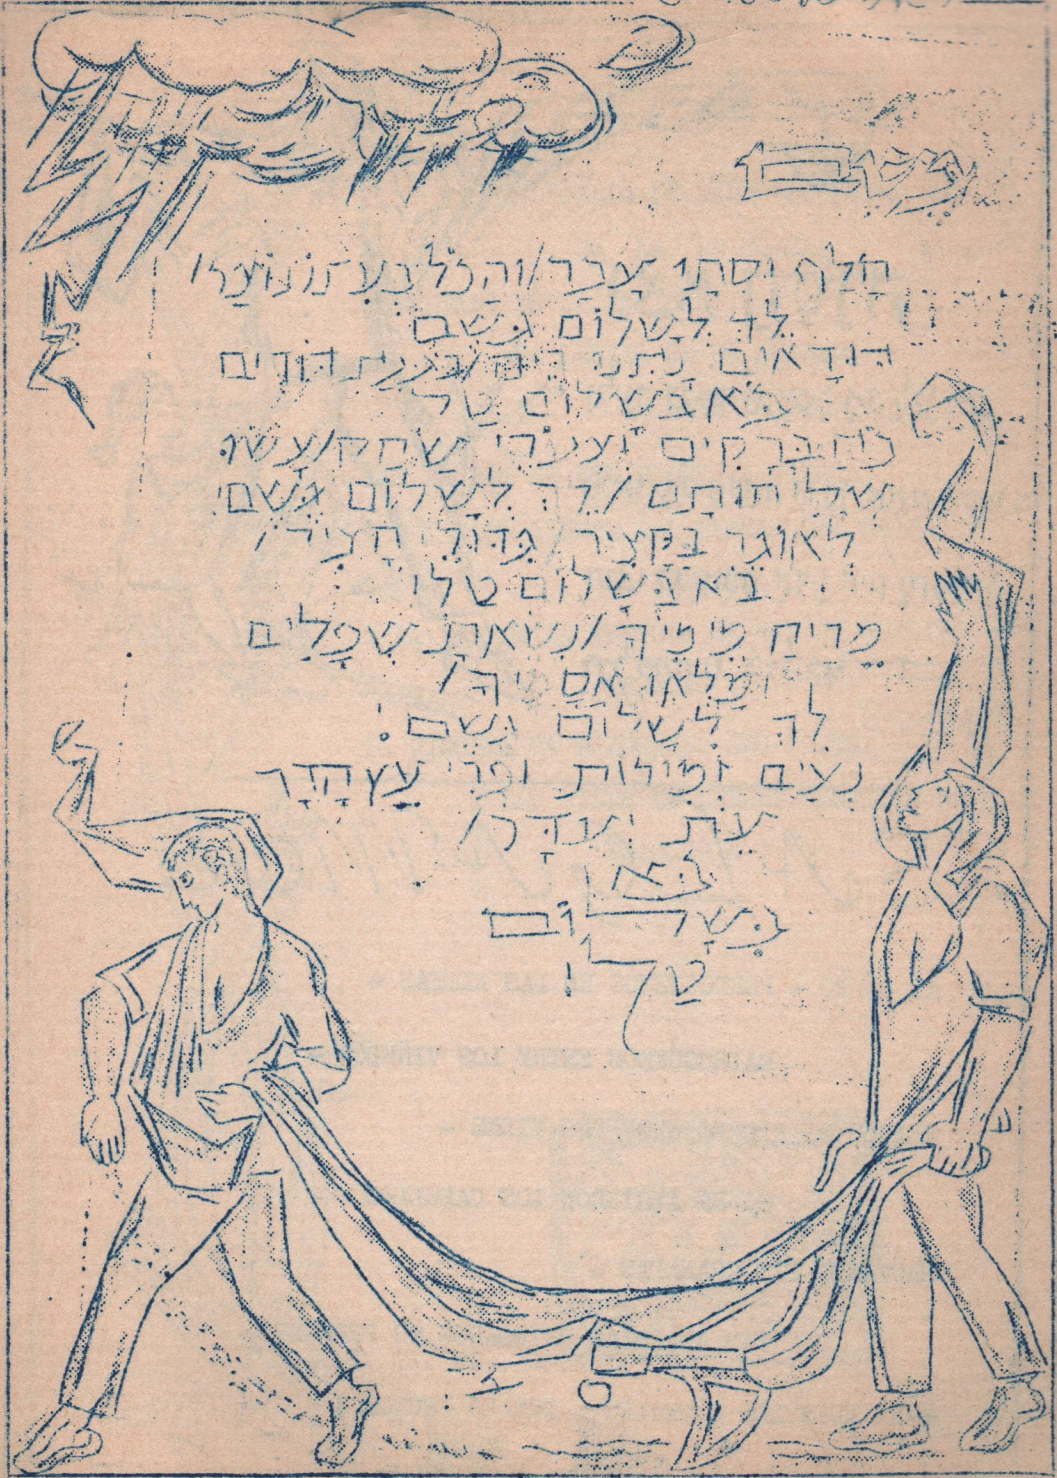 גשם
חלף וסתו עבר/והכל בעתו נוצר/
לך לשלום גשם
דודאים נתנו ריח/בגנת דודים
בא בשלום טל
ברקים שחק/עשו
שליחותם /לך לשלום גשם
לאוגר בקציר /גדולי חציר/
בא בשלום טל!
מריח מימיך / שפלים
ומלאו אסמיך/
לך לשלום גשם!
זמירות ופרי עץ הדר
עת /
בא
בשלום
טל!